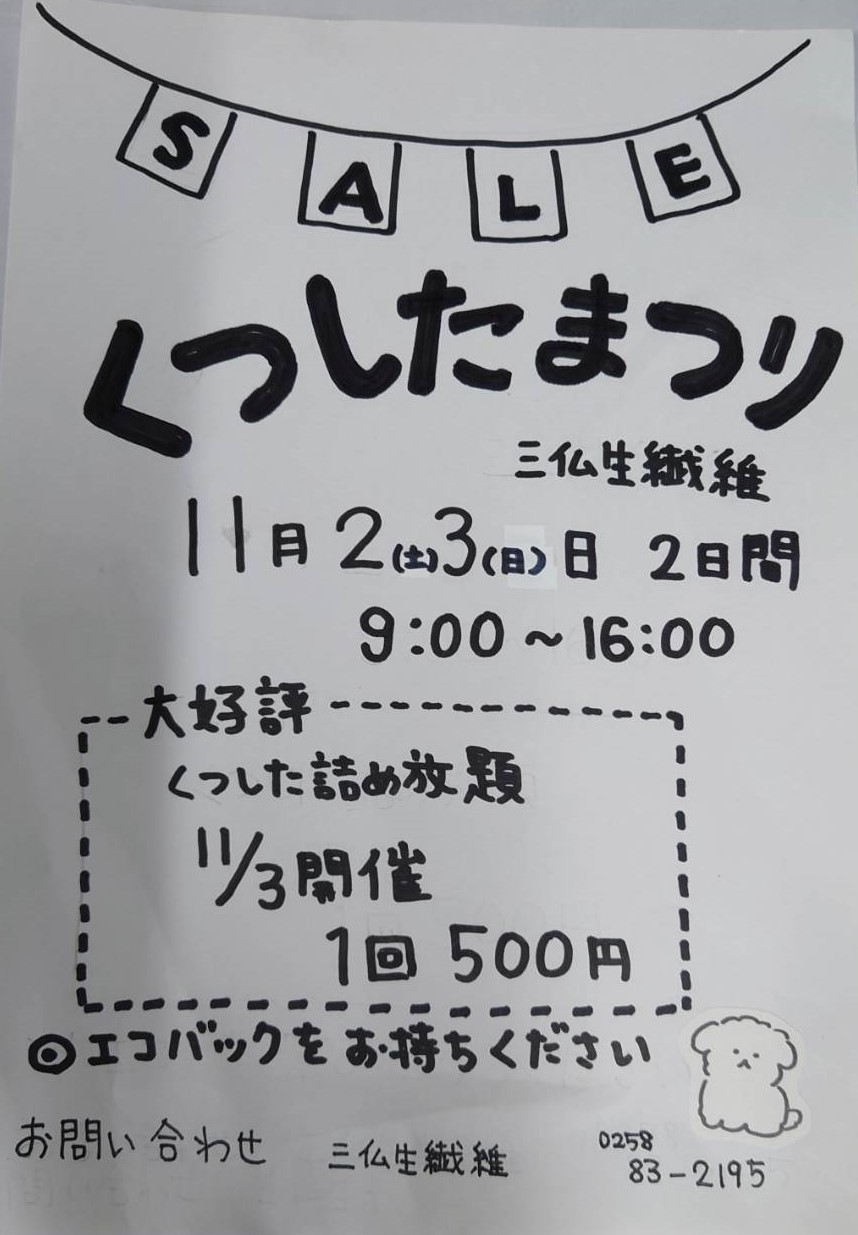 SALE
くつしたまつり
三仏生繊維
11月2(土)3(日)日 2日間
9:00~16:00
大好評
くつした詰め放題
11/3開催
1回 500円
◎エコバックをお持ちください
お問い合わせ 三仏生繊維 0258
83-2195